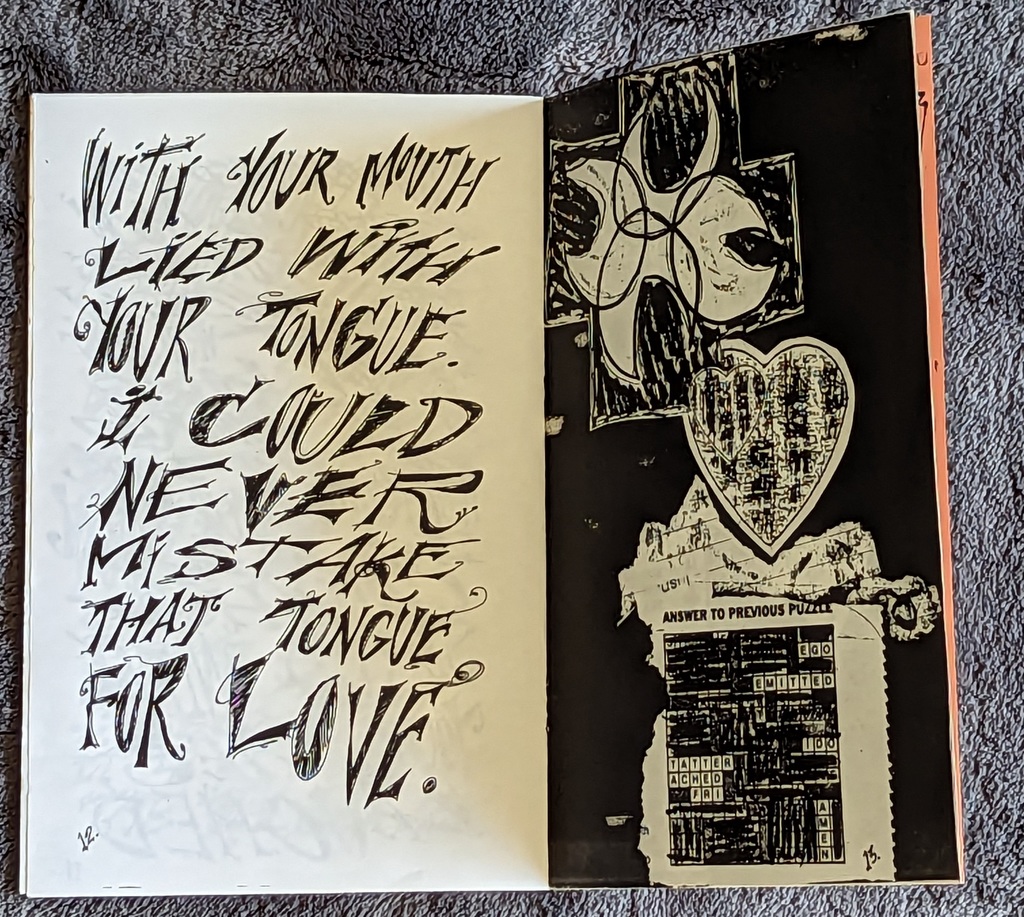 WITH YOUR MOUTH
LIED WITH
YOUR TONGUE.
I COULD
NEVER
MISTAKE
THAT TONGUE
FOR LOVE.
12.
ANSWER TO PREVIOUS PUZZLE
EGO
EMITTED
IDO
TATTER
ACHED
FRI
AMEN
13.